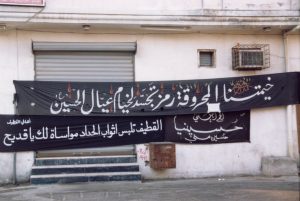 خيمتنا المحروقة: رمز تجسد لخيام عيال الحسين (ع)
أهالي القطيف
القطيف تلبس أثواب الحداد مواساة لك يا قديح
حسينية